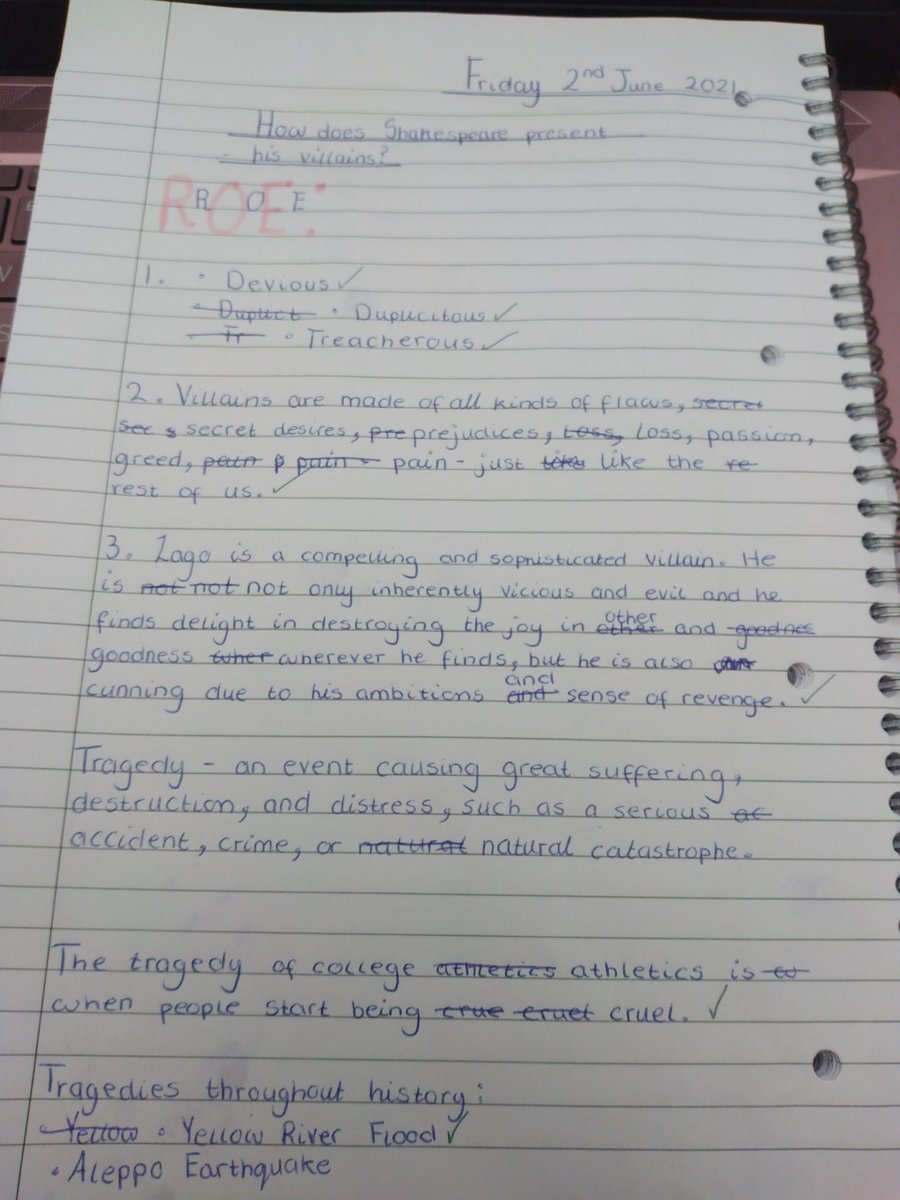 Friday 2nd June 2021
How does Shakespeare present
his villains?
ROE:
R O E
1. • Devious ✓
• Duplict • Duplicitous ✓
Tr • Treacherous ✓
2. Villains are made of all kinds of flaws, secret
sec s secret desires, pre prejudices, loss, loss, passion,
greed, pain p pain - pain - just like the re
rest of us. ✓
3. Iago is a compelling and sophisticated villain. He
is not not not only inherently vicious and evil and he
finds delight in destroying the joy in other other and goodnes
goodness wher wherever he finds, but he is also
cunning due to his ambitions and and sense of revenge. ✓
Tragedy - an event causing great suffering,
destruction, and distress, such as a serious ac
accident, crime, or natural natural catastrophe.
The tragedy of college athletics athletics is
when people start being crue cruel cruel. ✓
Tragedies throughout history:
• Yellow • Yellow River Flood ✓
• Aleppo Earthquake